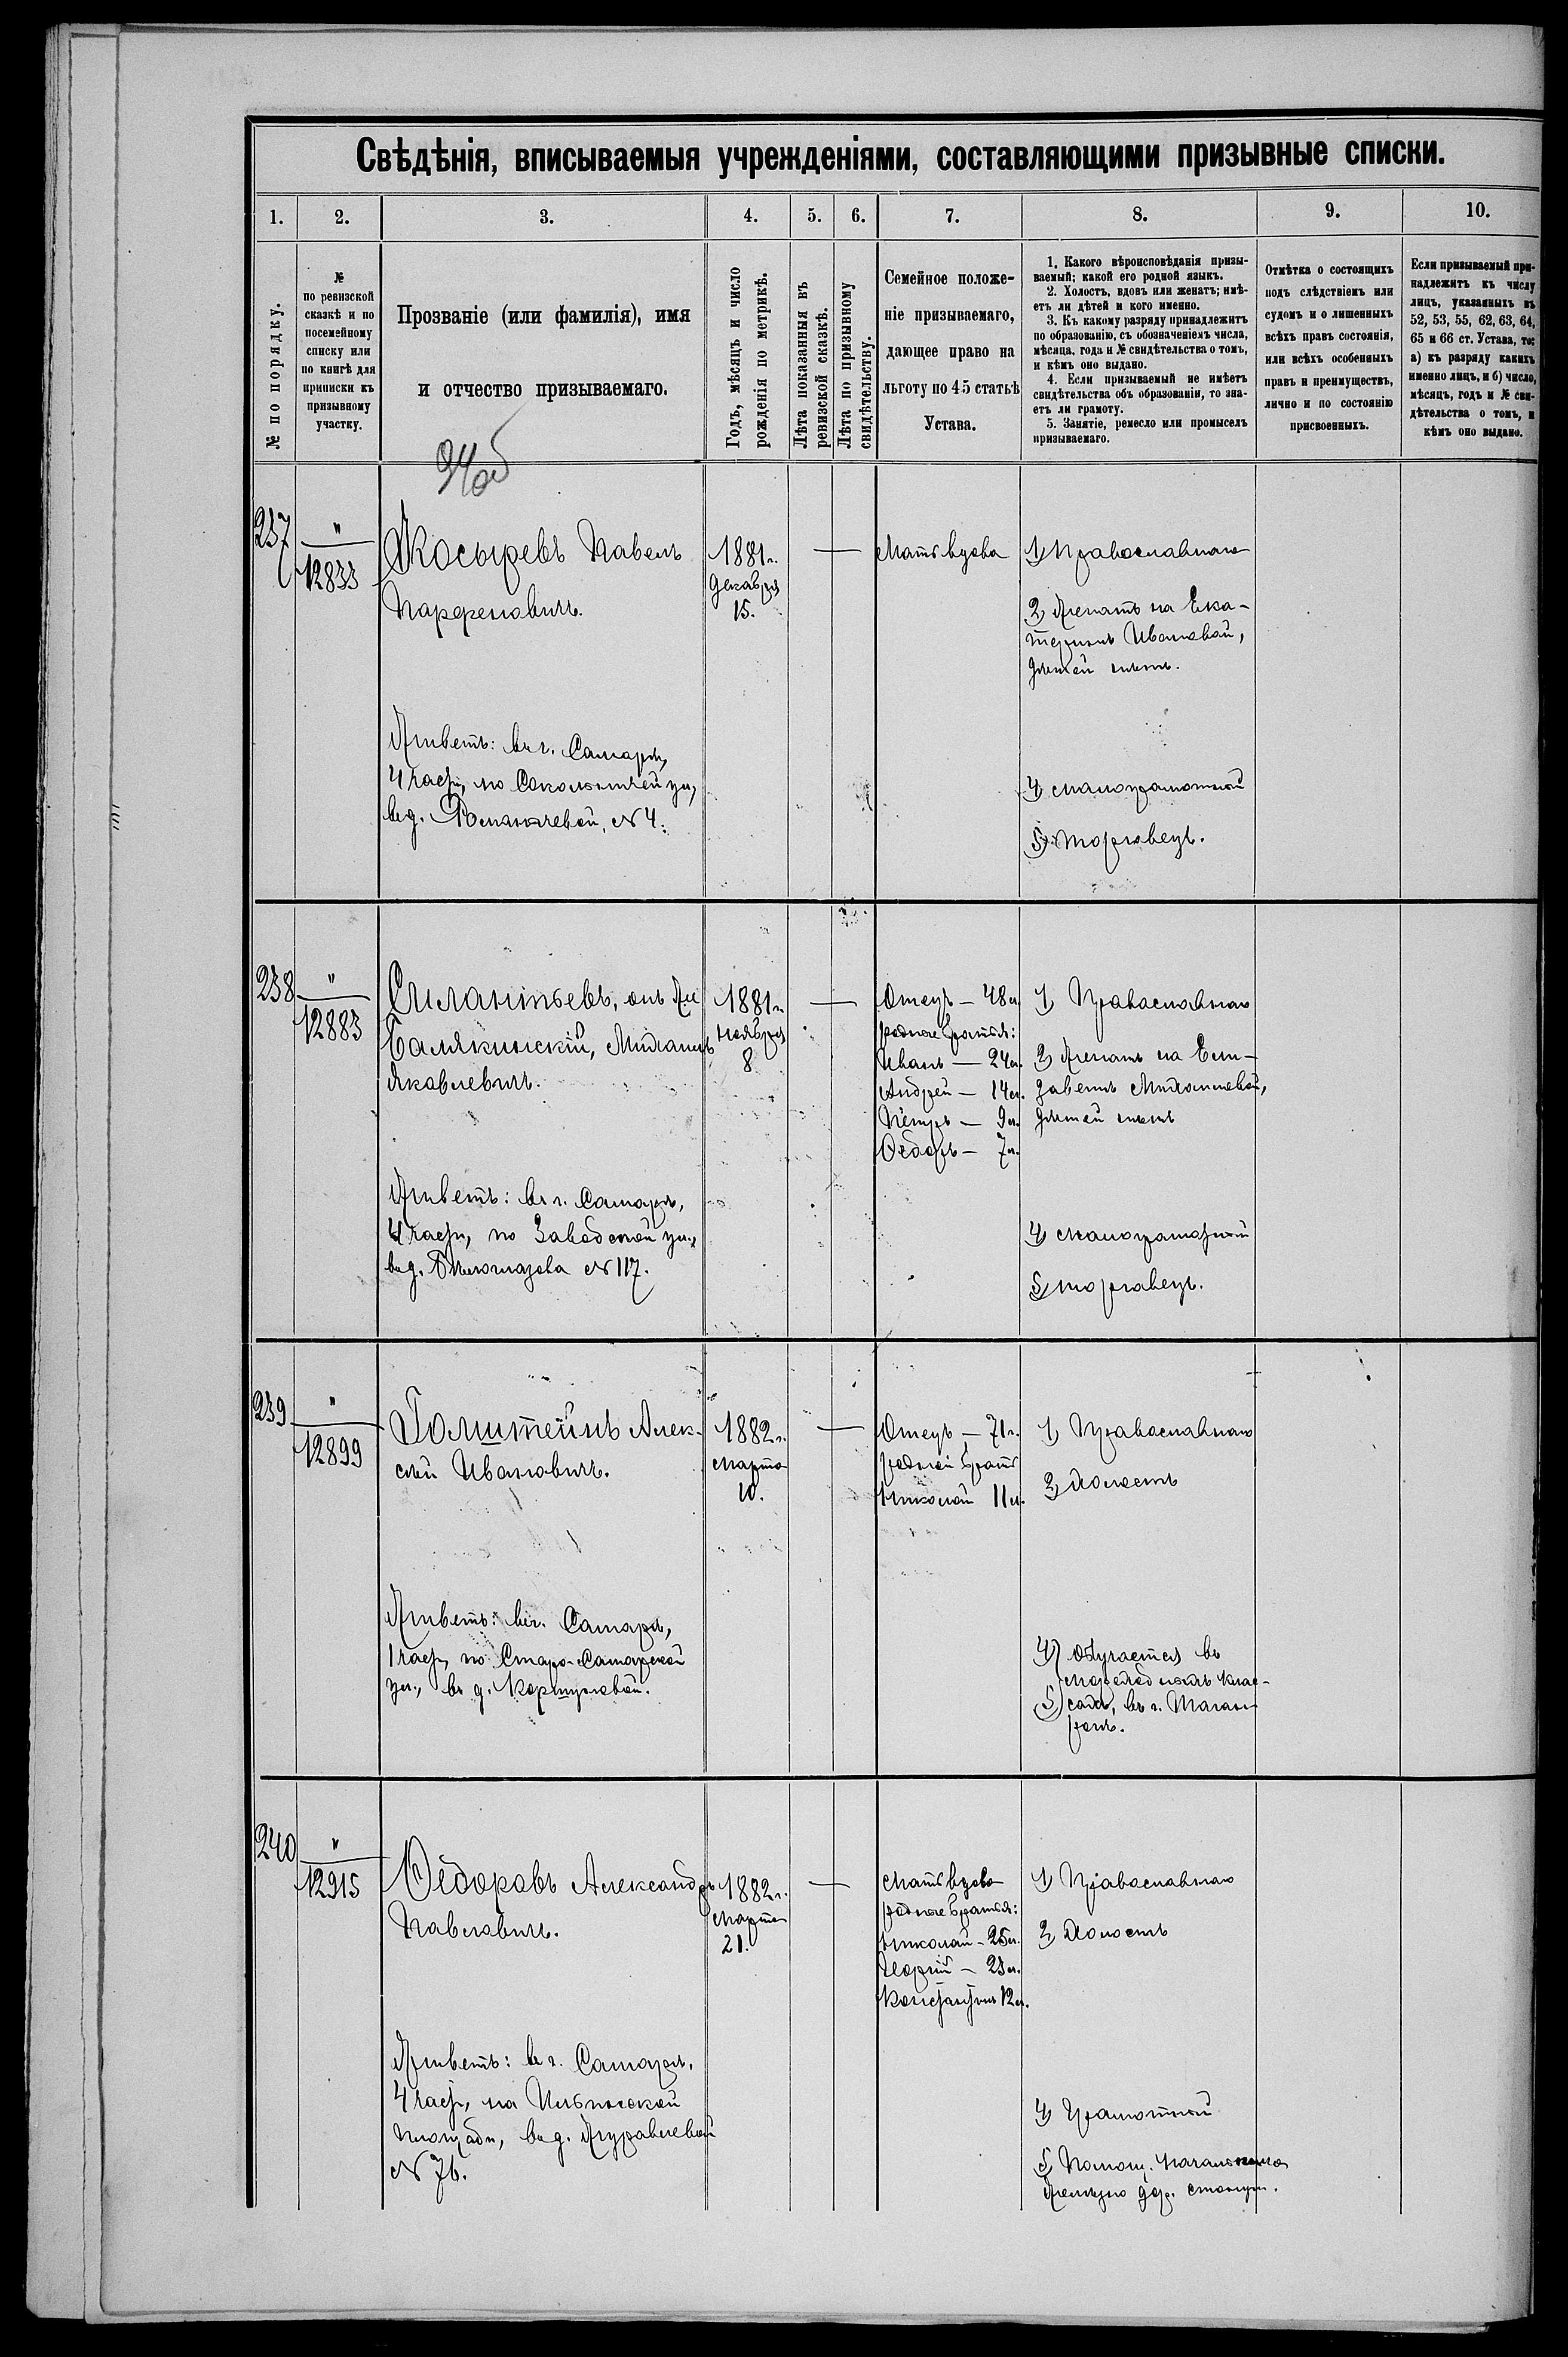 Свѣдѣнія, вписываемыя учрежденіями, составляющими призывные списки.
1. 2. 3. 4. 5. 6. 7. 8. 9. 10.
№ по порядку.
№
по ревизской
сказкѣ и по
посемейному
списку или
по книгѣ для
приписки къ
призывному
участку.
Прозваніе (или фамилія), имя
и отчество призываемаго.
Годъ, мѣсяцъ и число
рожденія по метрикѣ.
Лѣта показанныя въ
ревизской сказкѣ.
Лѣта по призывному
свидѣтельству.
Семейное положе-
ніе призываемаго,
дающее право на
льготу по 45 статьѣ
Устава.
1. Какого вѣроисповѣданія призы-
ваемый; какой его родной языкъ.
2. Холостъ, вдовъ или женатъ; имѣ-
етъ ли дѣтей и кого именно.
3. Къ какому разряду принадлежитъ
по образованію, съ обозначеніемъ числа,
мѣсяца, года и № свидѣтельства о томъ,
и кѣмъ оно выдано.
4. Если призываемый не имѣетъ
свидѣтельства объ образованіи, то зна-
етъ ли грамоту.
5. Занятіе, ремесло или промыселъ
призываемаго.
Отмѣтка о состоящихъ
подъ слѣдствіемъ или
судомъ и о лишенныхъ
всѣхъ правъ состоянія,
или всѣхъ особенныхъ
правъ и преимуществъ,
лично и по состоянію
присвоенныхъ.
Если призываемый при-
надлежитъ къ числу
лицъ, указанныхъ въ
52, 53, 55, 62, 63, 64,
65 и 66 ст. Устава, то:
а) къ разряду какихъ
именно лицъ, и б) число,
мѣсяцъ, годъ и № сви-
дѣтельства о томъ, и
кѣмъ оно выдано.
94об
237
"
12833
Косыревъ Павелъ
Парфеновичъ.
Живетъ: въ г. Самарѣ,
4 части, по Сокольничей ул,
въ д. Романычевой, № 4.
1881 г.
Декабря
15.
—
Мать вдова
1) Православнаго
2) Женатъ на Ека-
теринѣ Ивановой,
дѣтей нѣтъ.
4) малограмотный
5) Торговецъ.
238
"
12883
Силантьевъ, онъ же
Балякинскій, Михаилъ
Яковлевичъ.
Живетъ: въ г. Самарѣ,
4 части, по Заводской ул.,
въ д. № 117.
1881 г.
Ноября
8
—
Отецъ — 48 л.
родные братья:
Иванъ — 24 л.
Андрей — 14 л.
Петръ — 9 л.
Ѳедоръ — 7 л.
1) Православнаго
2) Женатъ на Ели-
заветѣ Михайловой,
дѣтей нѣтъ
4) малограмотный
5) торговецъ.
239
"
12899
Голштейнъ Алек-
сѣй Ивановичъ.
Живетъ: въ г. Самарѣ,
1 части, по Старо-Самарской
ул., въ д. Коршуновой.
1882 г.
Марта
10.
—
Отецъ — 71 г.
родной братъ
Николай 11 л.
1) Православнаго
2) Холостъ
4) Обучается въ
5) мореходныхъ клас-
сахъ, въ г. Таган-
рогѣ.
240
"
12915
Ѳедоровъ Александръ
Павловичъ.
Живетъ: въ г. Самарѣ,
4 части, на Ильинской
площади, въ д. Журавлевой
№ 76.
1882 г.
Марта
21.
—
Мать вдова
родные братья:
Николай — 25 л.
Георгій — 23 л.
Константинъ 12 л.
1) Православнаго
2) Холостъ
4) Грамотный
5) Помощ. начальника
Желѣзно дор. станціи.